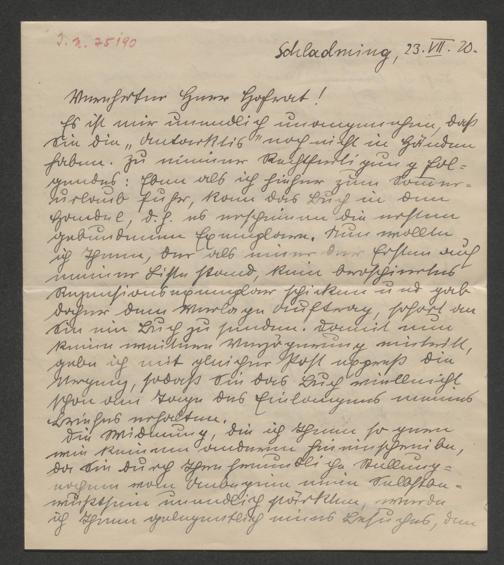 I. N. 75190
Schladming, 23. VII. 20.
Verehrter Herr Hofrat!
Es ist mir unendlich unangenehm, daß
Sie die „Antarktis" noch nicht in Händen
haben. Zu meiner Rechtfertigung Fol-
gendes: Eben als ich hieher zum Sommer-
urlaub fuhr, kam das Buch in den
Handel, d. h. es erschienen die ersten
gebundenen Exemplare. Nun wollte
ich Ihnen, der als einer der Ersten auf
meiner Liste stand, kein broschiertes
Rezensionsexemplar schicken und gab
daher dem Verlage Auftrag, sofort an
Sie ein Buch zu senden. Damit nun
keine weitere Verzögerung eintritt,
gebe ich mit gleicher Post express die
Weisung, sodaß Sie das Buch vielleicht
schon am Tage des Einlangens meines
Briefes erhalten.
Die Widmung, die ich Ihnen so gern
wie keinem anderen hineinschreibe,
da Sie durch Ihre freundliche Stellung-
nahme vom Anbeginn mein Selbstbe-
wußtsein unendlich stärkten, werde
ich Ihnen gelegentlich eines Besuches, den